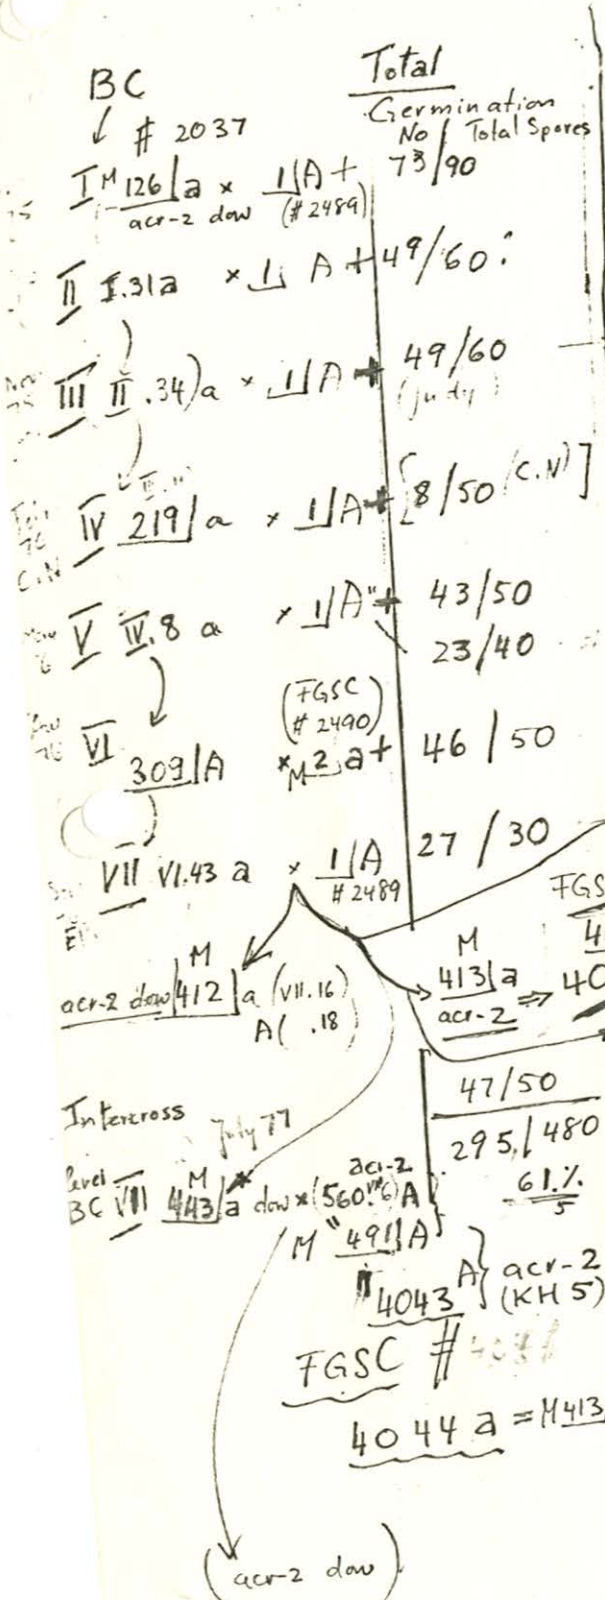 BC
Total
Germination
No / Total Spores
# 2037
I M 126|a × 1|A + 73/90
acr-2 dow (#2489)
II I.31a × 1| A + 49/60
III II.34)a × 1|A + 49/60
(Judy)
IV 219|a × 1|A + [8/50 (C.N)]
C.N
V IV.8 a × 1|A + 43/50
23/40
(FGSC
# 2490)
VI 309|A × M 2 a + 46/50
VII VI.43 a × 1|A 27/30
#2489
FGS
M
acr-2 dow|412|a (VII.16)
A( .18)
M
413|a ⇒ 40
acr-2
47/50
Intercross
July 77
295/480
61.%
level
BC VIII M 443|a dow × (560 A
acr-2
M " 491|A
" 4043 A} acr-2
(KH5)
FGSC #
4044 a = M413
(acr-2 dow)